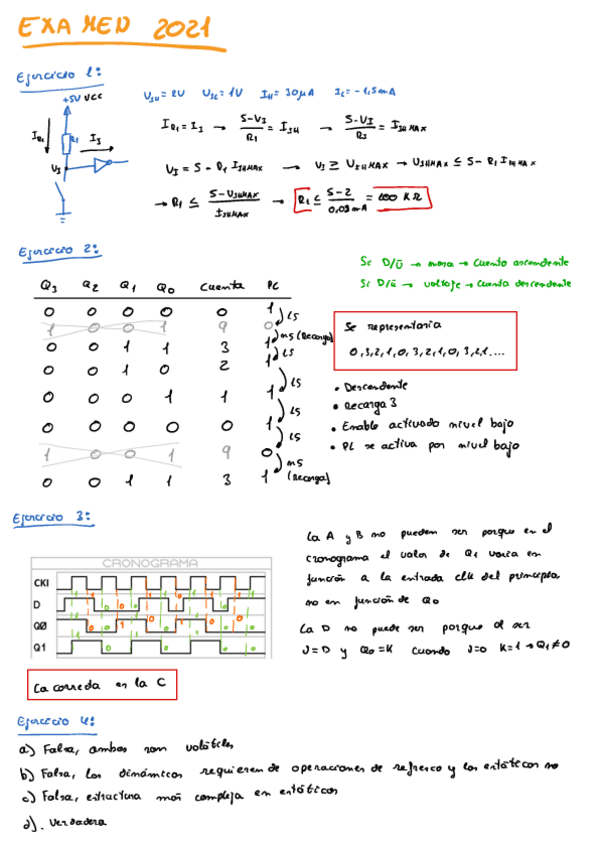 EXAMEN 2021
Ejercicio 1:
+5V VCC
V_IH = 2V V_IL = 1V I_IH = 30μA I_IL = -1,5mA
I_R1 R1 I_I
V_I
I_R1 = I_I → (5-V_I)/R1 = I_IH → (5-V_I)/R1 = I_IHMAX
V_I = 5 - R1 I_IHMAX → V_I ≥ V_IHMAX → V_IHMAX ≤ 5 - R1 I_IHMAX
→ R1 ≤ (5-V_IHMAX)/I_IHMAX → R1 ≤ (5-2)/0,03mA = 100 KΩ
Ejercicio 2:
Si D/Ū → masa → cuenta ascendente
Si D/Ū → voltaje → cuenta descendente
Q3 Q2 Q1 Q0 Cuenta PL
0 0 0 0 0 1
1s
1 0 0 1 9 0
ms (Recarga)
0 0 1 1 3 1
1s
0 0 1 0 2 1
1s
0 0 0 1 1 1
1s
0 0 0 0 0 1
1s
1 0 0 1 9 0
ms (Recarga)
0 0 1 1 3 1
Se representaria
0,3,2,1,0,3,2,1,0,3,2,1....
• Descendente
• Recarga 3
• Enable activado nivel bajo
• PL se activa por nivel bajo
Ejercicio 3:
CRONOGRAMA
CKI
D
Q0
Q1
La correcta es la C
La A y B no pueden ser porque en el
cronograma el valor de Q1 varia en
función a la entrada clk del principio
no en función de Q0
La D no puede ser porque al ser
J=D y Q0=K cuando J=0 K=1 → Q1≠0
Ejercicio 4:
a) Falsa, ambos son volátiles
b) Falsa, los dinámicos requieren de operaciones de refresco y los estáticos no
c) Falsa, estructura más compleja en estáticos
d). Verdadera